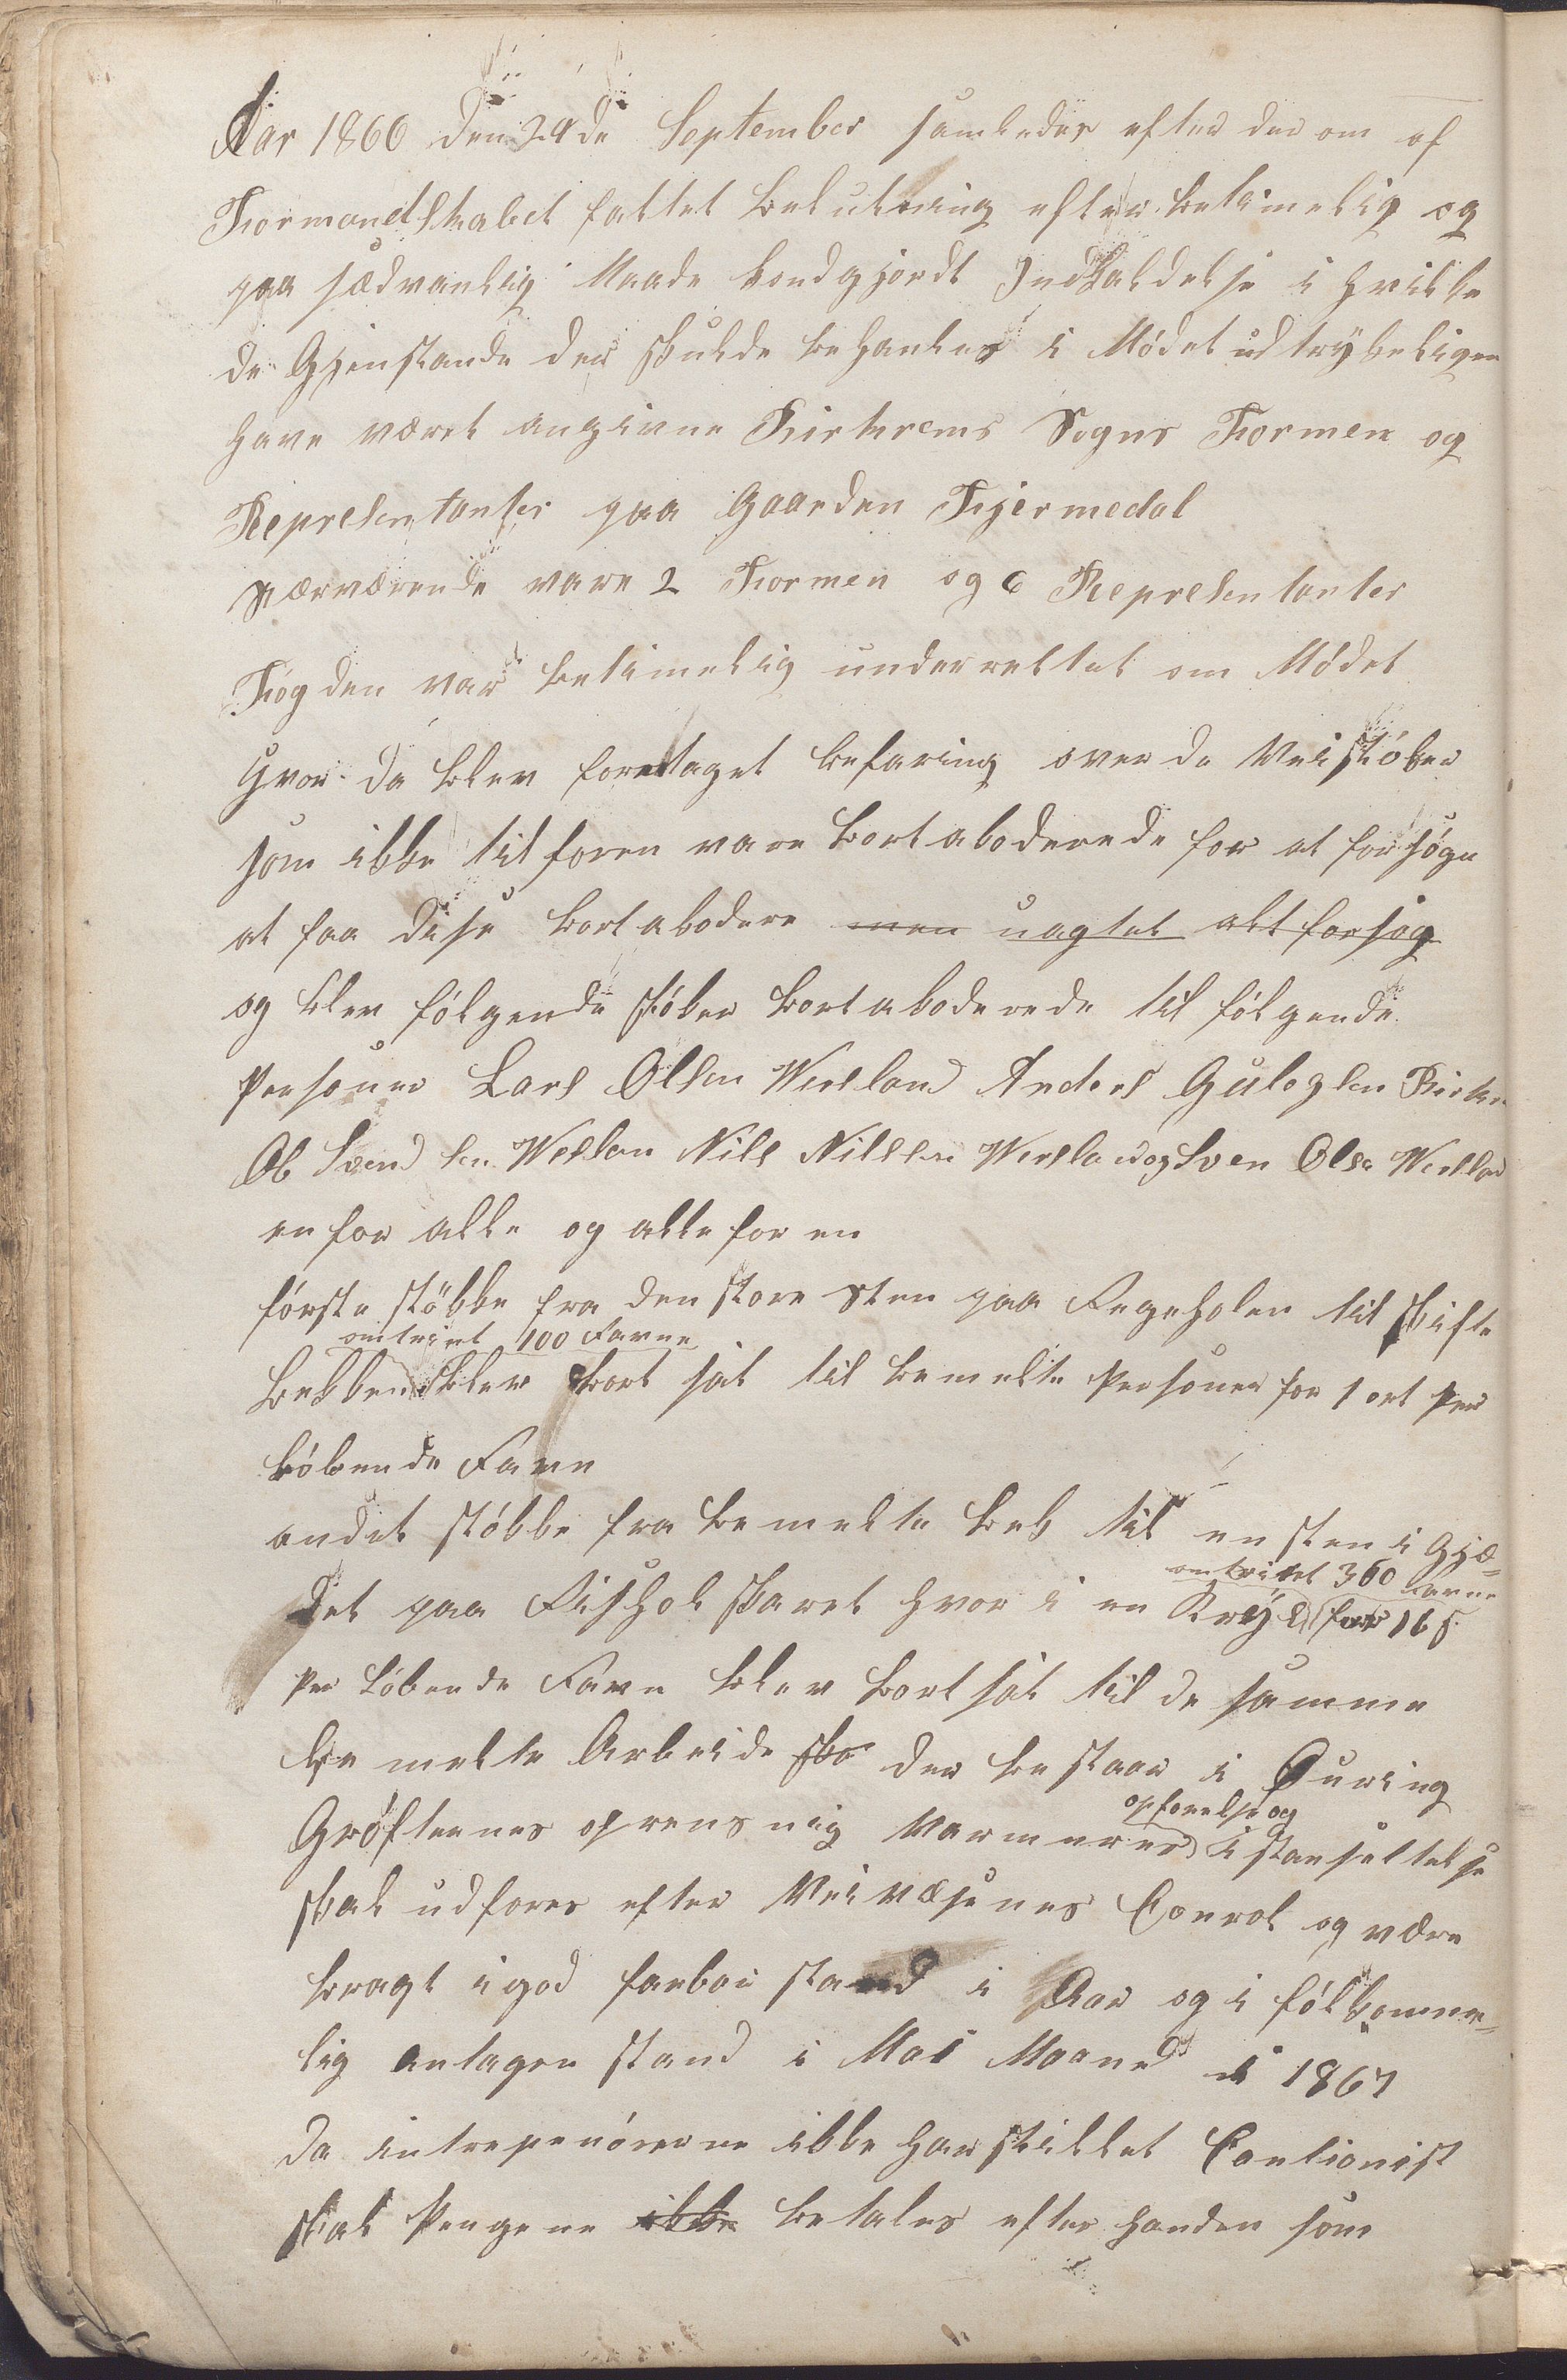 Aar 1866 den 24de September samledes efter der om af
Formandskabet fattet Beslutning efter betimelig og
paa sædvanlig Maade kondgjordt Indkaldelse i hvilke
de Gjenstande der skulde behanles i Mødet udtrykeligen
have været angivne Birkrems Sogns Formen og
Represlentanter paa Gaarden Kjermedal
Nærværende vare 2 Formen og 6 Represlentanter
Fogden var betimelig underrettet om Mødet
Hvor da blev foretaget befaring over de Veistøker
som ikke tilforen vare bortakoderede for at forsøge
at faa dise bortakodere men uagtet alt forsøg
og blev følgende støker bortakoderede til følgende
Personer Lars Olsen Wesland Anders Gulegsen Birkr
Ole Svend sen Weslan Nils Nilssen Wesland og Sven Olse Wesland
en for alle og alle for en
første støkke fra den store Sten paa Fegeholen til skifte
omtrint 100 Favne
Bekken blev bort sat til bemelte Personer for 1 ort per
løbende Favn
andet støkke fra bemelte Bek til en sten i Gjæ-
omtrint 360 Favne
det paa Fishol skaret hvor i en Kryds for 16 s
per løbende Favn blev bortsat til de samme
be melte Arbeide ska der bestaar i Puring
opførelse og
Grøfternes oprensnig Murmerer istansettelse
skal udføres efter Veivæsenes Conrol og være
bragt i god farbar stand i Aar og i følkomme-
lig antagen stand i Mai Maaned i 1867
da intrepenørerne ikke har stillet Cautionist
skal Pengene ikke betales efter handen som